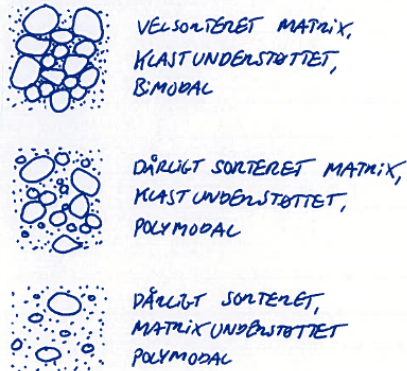 VELSORTERET MATRIX,
KLASTUNDERSTØTTET,
BIMODAL
DÅRLIGT SORTERET MATRIX,
KLASTUNDERSTØTTET,
POLYMODAL
DÅRLIGT SORTERET,
MATRIXUNDERSTØTTET
POLYMODAL